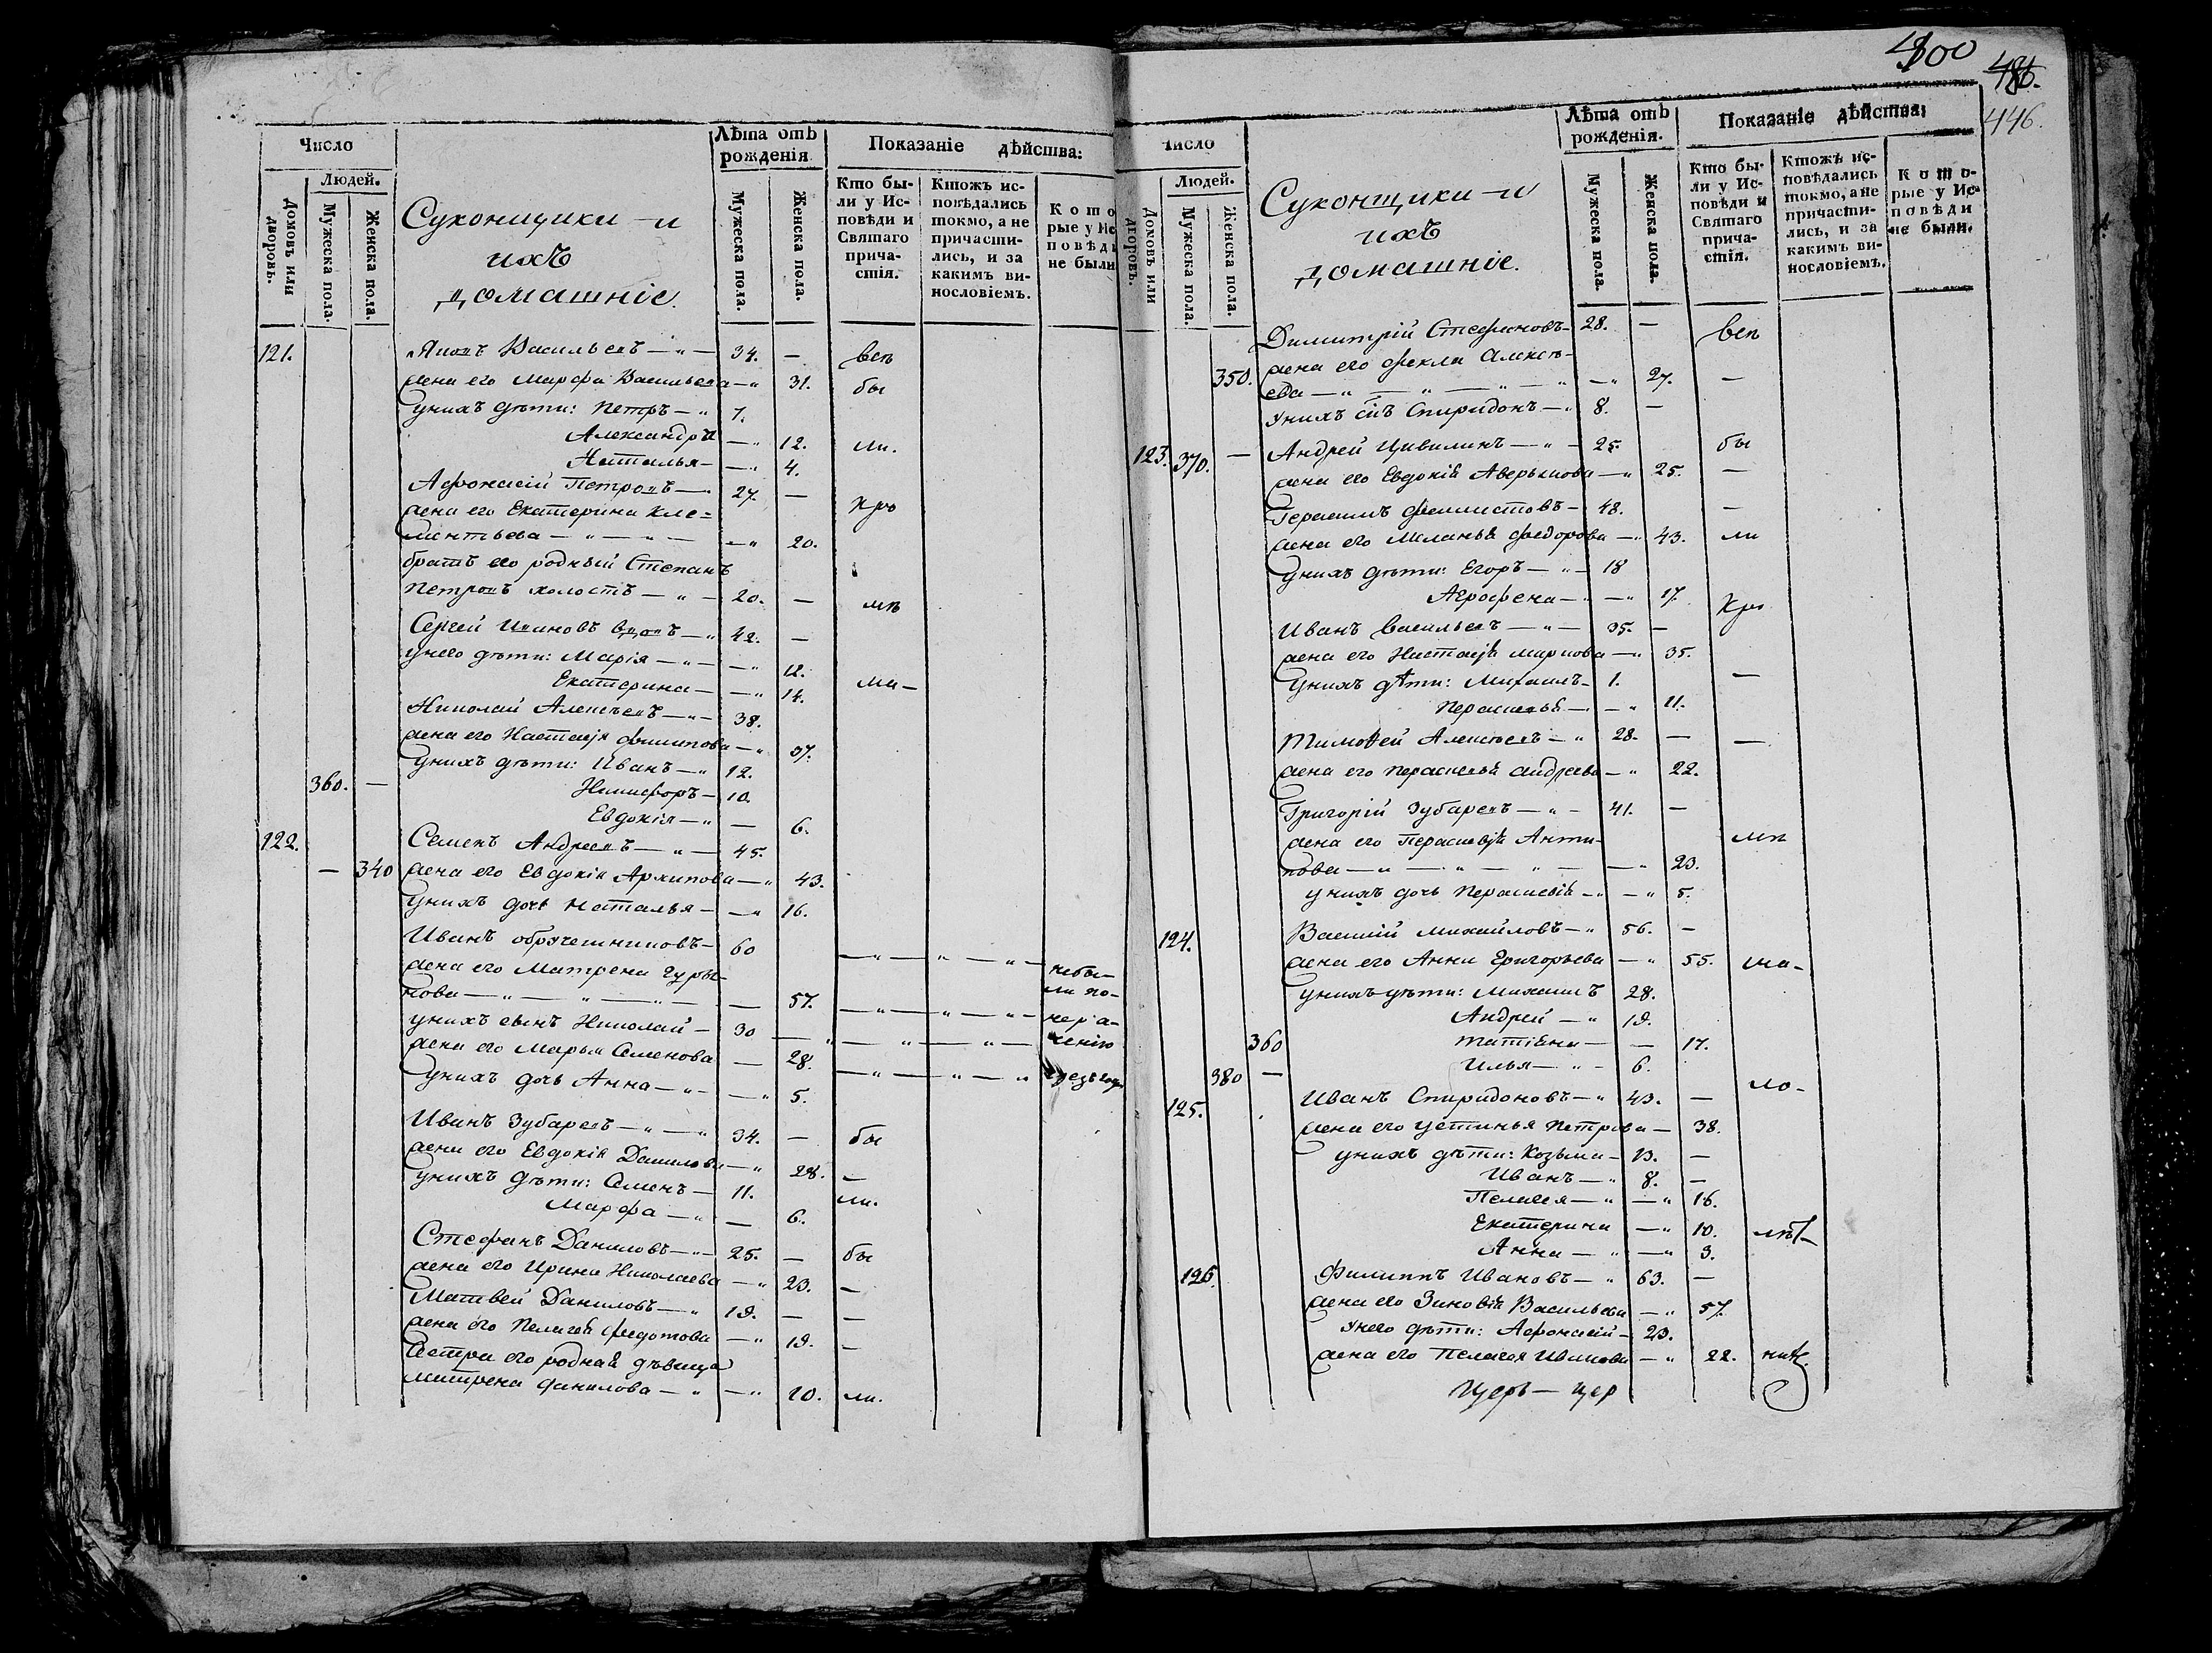 Число
Людей.
Домовъ или дворовъ.
Мужеска пола.
Женска пола.
Суконщики и
ихъ
домашніе.
Лѣта отъ рожденія
Мужеска пола.
Женска пола.
Показаніе дѣйства:
Кто бы-
ли у Ис-
повѣди и
Святаго
прича-
стія.
Ктожъ ис-
повѣдались
токмо, а не
причасти-
лись, и за
какимъ ви-
нословіемъ.
Кото
рые у Ис
повѣди
не были
121. Васильевъ — 34. — всѣ
жена его Марфа Васильева — 31. бы
у нихъ дѣти: Петръ — 7.
Александра — 12. ли.
Наталья — 4.
Афонасій Петровъ — 27. —
жена его Екатерина Кле= кро
ментьева — 20.
братъ его родный Степанъ
Петровъ холостъ — 20. — мѣ
Сергей Ивановъ вдовъ — 42. —
у него дѣти: Марія — 12.
Екатерина — 14. ма-
Николай Алексѣевъ — 38.
жена его Настасья Филипова — 37.
у нихъ дѣти: Иванъ — 12.
360. — Никифоръ — 10.
Евдокія — 6.
122. Семенъ Андреевъ — 45.
— 340 жена его Евдокія Архипова — 43.
у нихъ дочь Наталья — 16.
Иванъ Обручешниковъ — 60
жена его Матрена Гурья- небы-
нова — 57. ли по
у нихъ сынъ Николай — 30 нера-
жена его Марья Семенова — 28. ченію
у нихъ дочь Анна — 5.
Иванъ Зубаревъ — 34. — бы
жена его Евдокія Данилова — 28. —
у нихъ дѣти: Семенъ — 11. ли.
Марфа — 6.
Стефанъ Даниловъ — 25. — бы
жена его Ирина Николаева — 23. —
Матвей Даниловъ — 19. — —
жена его Пелагея Федотова — 19. —
Сестра его родная дѣвица
Матрена Данилова — 20. ли.
400
486.
446.
Число
Людей.
Домовъ или дворовъ.
Мужеска пола.
Женска пола.
Суконщики и
ихъ
домашніе.
Лѣта отъ рожденія.
Мужеска пола.
Женска пола.
Показаніе дѣйства;
Кто бы-
ли у Ис-
повѣди и
Святаго
прича-
стія.
Ктожъ ис-
повѣдались
токмо, а не
причасти-
лись, и за
какимъ ви-
нословіемъ.
Кото-
рые у Ис-
повѣди
не были.
Димитрій Стефановъ — 28. — всѣ
жена его Фекла Алексѣ-
350. ева — 27. —
у нихъ сынъ Спиридонъ — 8. —
123. 370. — Андрей Цивилинъ — 25. бы
жена его Евдокія Аверьянова — 25. —
Герасимъ Филистовъ — 48. —
жена его Меланья Федорова — 43. ли
у нихъ дѣти: Егоръ — 18
Агрофена — 17. кро
Иванъ Васильевъ — 35. —
жена его Настасья Маркова — 35.
у нихъ дѣти: Михаилъ — 1. —
Параскевья — 11.
Тимофей Алексѣевъ — 28. — —
жена его Параскевья Андреева — 22.
Григорій Зубаревъ — 41. —
жена его Параскевья Анти- мѣ
пова — 23.
у нихъ дочь Параскевія — 5.
124. Василій Михайловъ — 56. —
жена его Анна Григорьева — 55. ма-
у нихъ дѣти: Михаилъ 28.
Андрей — 19.
360 Татіана — 17.
380 — Илья — 6. ло-
125. Иванъ Спиридоновъ — 43. —
жена его Устинья Петрова — 38.
у нихъ дѣти: Козьма — 13. —
Иванъ — 8. —
Пелагея — 16.
Екатерина — 10. лѣт-
Анна — 3.
126. Филиппъ Ивановъ — 63. —
жена его Зиновія Васильева — 57.
У него дѣти: Афонасій — 23.
жена его Пелагея Иванова — 22. них.